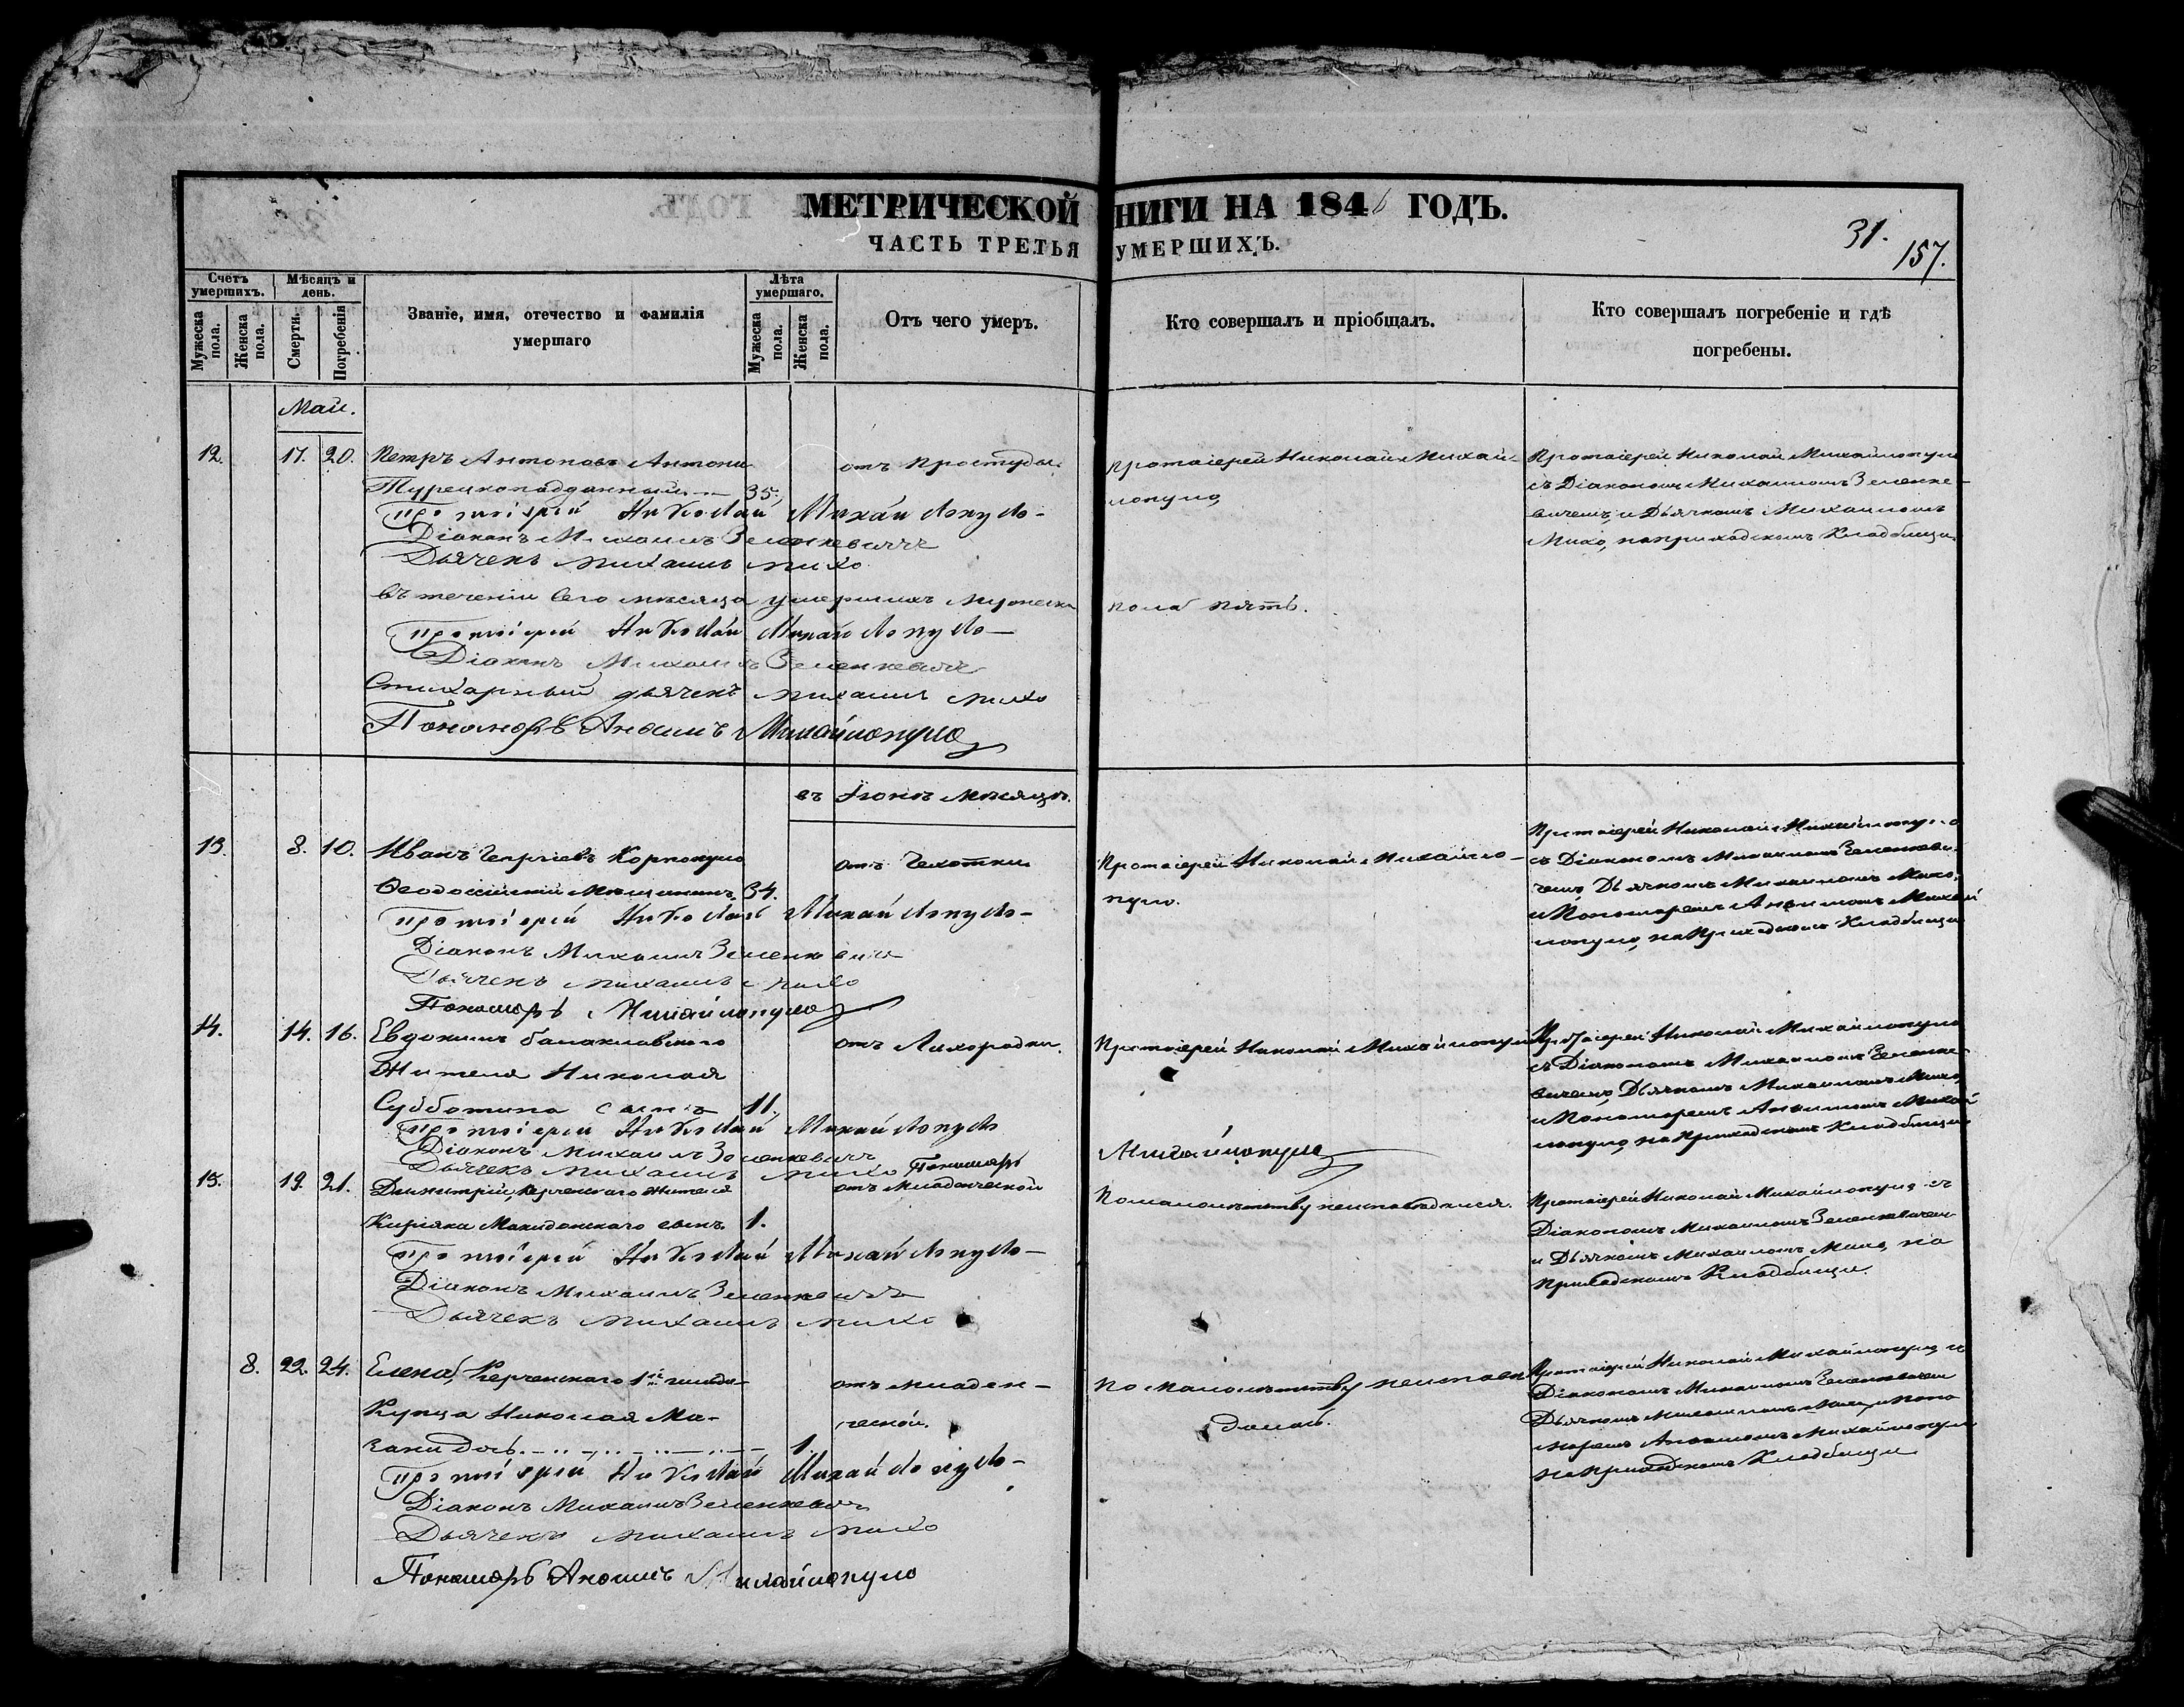 МЕТРИЧЕСКОЙ КНИГИ НА 1846 ГОДЪ.
ЧАСТЬ ТРЕТЬЯ УМЕРШИХЪ.
31.
157.
Счетъ умершихъ.
Мужеска пола.
Женска пола.
Мѣсяцъ и день.
Смерти.
Погребенія
Званіе, имя, отечество и фамилія
умершаго
Лѣта умершаго.
Мужеска пола.
Женска пола.
Отъ чего умеръ.
Кто совершалъ и пріобщалъ.
Кто совершалъ погребеніе и гдѣ
погребены.
Май.
12. 17. 20.
Петръ Антоновъ Антони
Турецкоподданный 35.
отъ простуды.
Протоіерей Николай Михай-
лопуло,
Протоіерей Николай Михайлопуло
съ Діакономъ Михаиломъ Зеленке-
вичемъ, и Дьячкомъ Михаиломъ
Михо, на приходскомъ Кладбищѣ
Протоіерей Николай Михайлопуло
Діаконъ Михаилъ Зеленкевичъ
Дьячекъ Михаилъ Михо
въ теченіи сего мѣсяца умершихъ мужеска пола пять.
Протоіерей Николай Михайлопуло
Діаконъ Михаилъ Зеленкевичъ
Стихарный дьячекъ Михаилъ Михо
Пономаръ Анѳимъ Михайлопуло
въ Іюнѣ мѣсяцѣ.
13. 8. 10.
Иванъ Георгіевъ Корпопуло
Ѳеодосійскій Мѣщанинъ 34.
отъ Чехотки
Протоіерей Николай Михайло-
пуло.
Протоіерей Николай Михайлопуло
съ Діакономъ Михаиломъ Зеленкеви-
чемъ, Дьячкомъ Михаиломъ Михо,
и Пономаремъ Анѳимомъ Михай
лопуло, на Приходскомъ Кладбищѣ
Протоіерей Николай Михайлопуло
Діаконъ Михаилъ Зеленкевичъ
Дьячекъ Михаилъ Михо
Пономаръ Михайлопуло
14. 14. 16.
Евдокимъ балаклавскаго
Жителя Николая
Субботина сынъ 11.
отъ Лихорадки.
Протоіерей Николай Михайлопуло
Протоіерей Николай Михайлопуло
съ Діакономъ Михаиломъ Зеленке-
вичемъ, Дьячкомъ Михаиломъ Михо,
и Пономаремъ Анѳимомъ Михай
лопуло, на Приходскомъ Кладбищѣ
Протоіерей Николай Михайлопуло
Діаконъ Михаилъ Зеленкевичъ
Дьячекъ Михаилъ Михо Пономаръ
Михайлопуло
15. 19. 21.
Димитрій, Керченскаго Жителя
Киріяка Македонскаго сынъ 1.
отъ Младенческой
По малолѣтству неисповѣдался.
Протоіерей Николай Михайлопуло съ
Діакономъ Михаиломъ Зеленкевичемъ
и Дьячкомъ Михаиломъ Михо, на
Приходскомъ Кладбищѣ.
Протоіерей Николай Михайлопуло
Діаконъ Михаилъ Зеленкевичъ
Дьячекъ Михаилъ Михо
8. 22. 24.
Елена, Керченскаго 1й гильди
Купца Николая Ма-
дочь 1.
отъ младен-
ческой.
По малолѣтству неисповѣ
далась.
Протоіерей Николай Михайлопуло съ
Діакономъ Михаиломъ Зеленкевичемъ
Дьячкомъ Михаиломъ Михо, и Поно
маремъ Анѳимомъ Михайлопуло
на Приходскомъ Кладбищѣ
Протоіерей Николай Михайлопуло
Діаконъ Михаилъ Зеленкевичъ
Дьячекъ Михаилъ Михо
Пономаръ Анѳимъ Михайлопуло